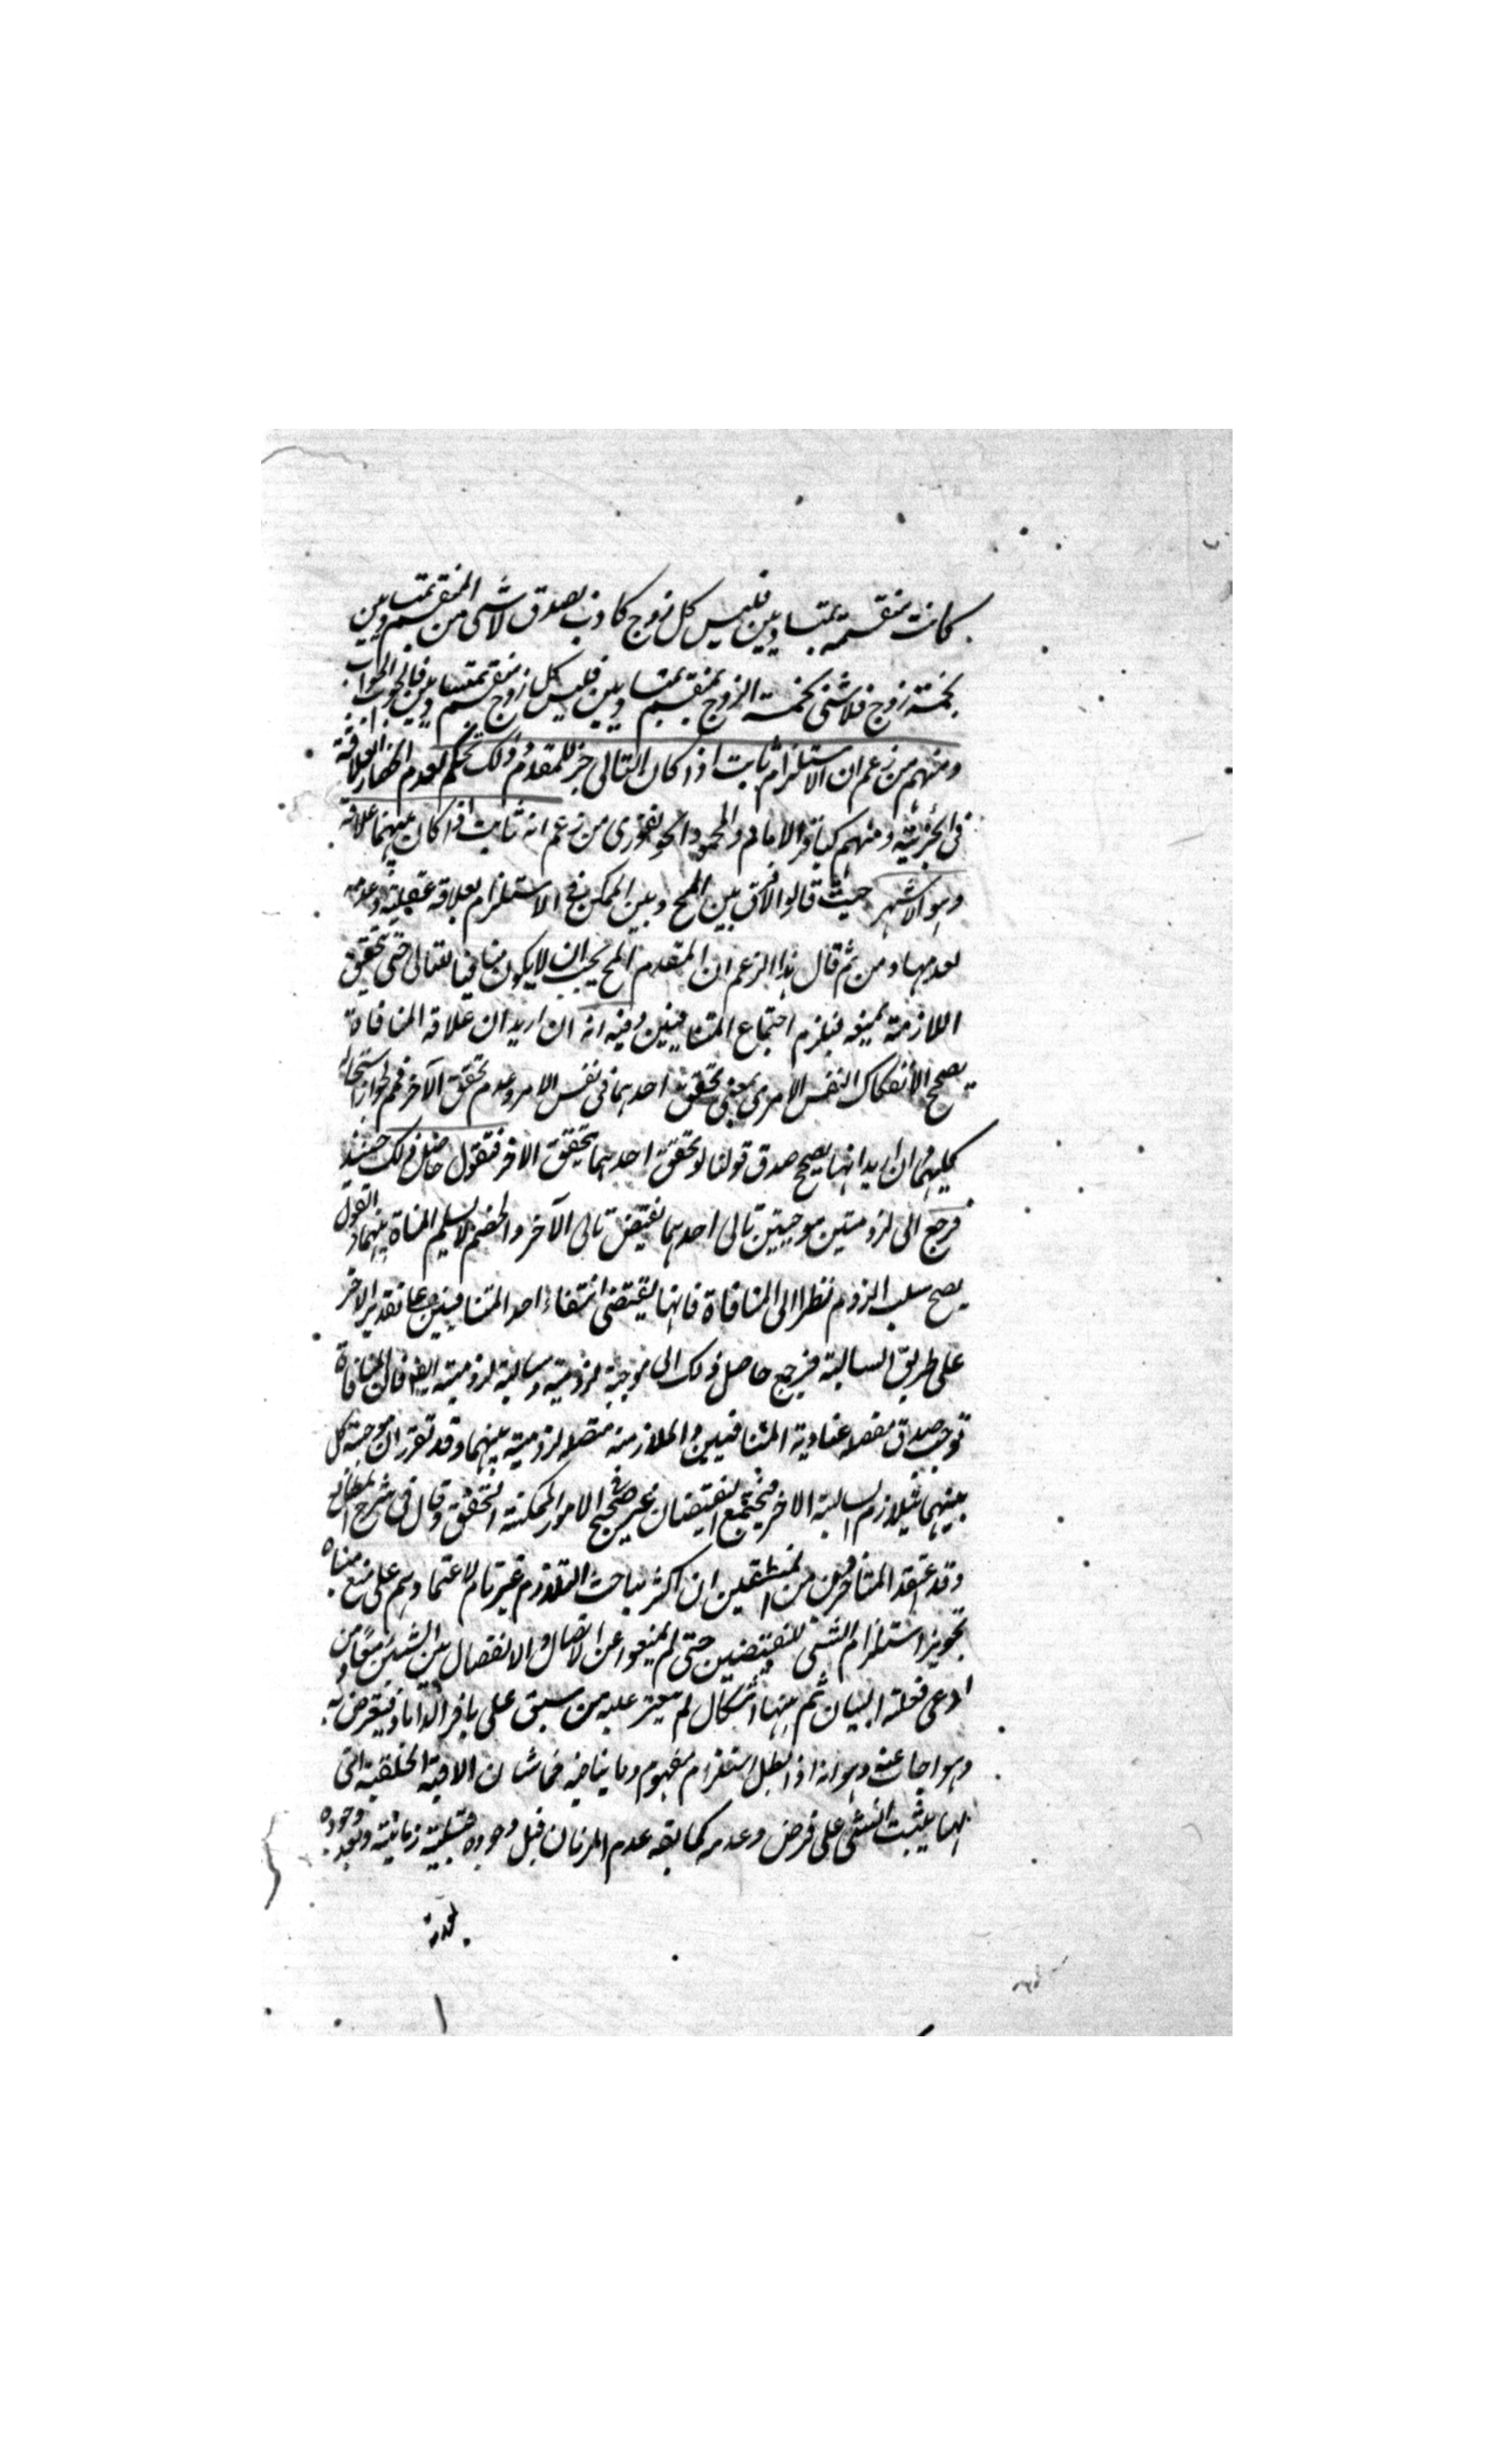 كانت منقسمة بمتساويين فليس كل زوج كاذب بصدق لا شئ من المنقسم بمتساويين
بخمسة زوج فلا شئ بخمسة الزوج بمنقسم بمتساويين فليس كل زوج منقسم بمتساويين فالجواب الجواب
ومنهم من زعم ان الاستلزام ثابت اذا كان التالى جزء للمقدم وذلك تحكم لعدم انحصار العلاقة
فى الجزئية ومنهم كباقر الامام والمحمود الجونفورى من زعم انه ثابت اذا كان بينهما علاقة
وهو الاشهر حيث قالوا لا فرق بين المح وبين الممكن فى الاستلزام بعلاقة عقلية وعدمه
لعدمها ومن ثم قال هذا الزعم ان المقدم المح يجب ان لا يكون منافيا للتالى حتى تحقق
اللازمة بمعيه فيلزم اجتماع المتنافيين وفيه انه ان اريد ان علاقة المنافاة
يصحح الانفكاك النفس الامرى بمعنى تحقق احدهما فى نفس الامر وعدم تحقق الآخر فمم لجواز استحالة
كليهما وان اريد انها يصحح صدق قولنا لو تحقق احدهما تحقق الاخر فنقول حاصل ذلك حينئذ
فرجع الى لزوميتين موجبتين تالى احدهما نقيض تالى الآخر والخصم لا يسلم المنافاة بينهما والقول
يصح سلب اللزوم نظرا الى المنافاة فانها يقتضى انتفاء احد المتنافيين على تقدير الاخر
على طريق السالبة فيرجع حاصل ذلك الى موجبة لزومية وسالبة لزومية ايضا فان المنافاة
توجب صدق منفصلة عنادية المتنافيين والملازمة متصلة لزومية بينهما وقد تقرر ان موجبة كل
بينهما يلازم السالبة الاخر فيجتمع النقيضان فى الامور الممكنة التحقق وقال فى شرح المطالع
وقد اعتقد المتاخرون من المنطقيين ان اكثر مباحث التلازم غير تام لاعتمادهم على منع مبناه
تجويز استلزام الشئ للنقيضين حتى لم يمنعوا عن الاتصال والانفصال بين الشيئين معا ومن
ادعى فعليه البيان ثم ههنا اشكال لم يعثر عليه من سبق على باقر الداماد فيتعرض به
وهو اجاب عنه وهو انه اذا بطل استلزام مفهوم وما ينافيه فما شان الاقيسة الخلقية التى
بها يثبت الشئ على فرض وعدمه كما بقه عدم الزمان قبل وجوده قبلية زمانية وبعد وجوده
بعدية